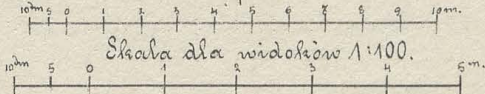 10dm 5 0 1 2 3 4 5 6 7 8 9 10 m.
Skala dla widoków 1:100.
10dm 5 0 1 2 3 4 5 m.